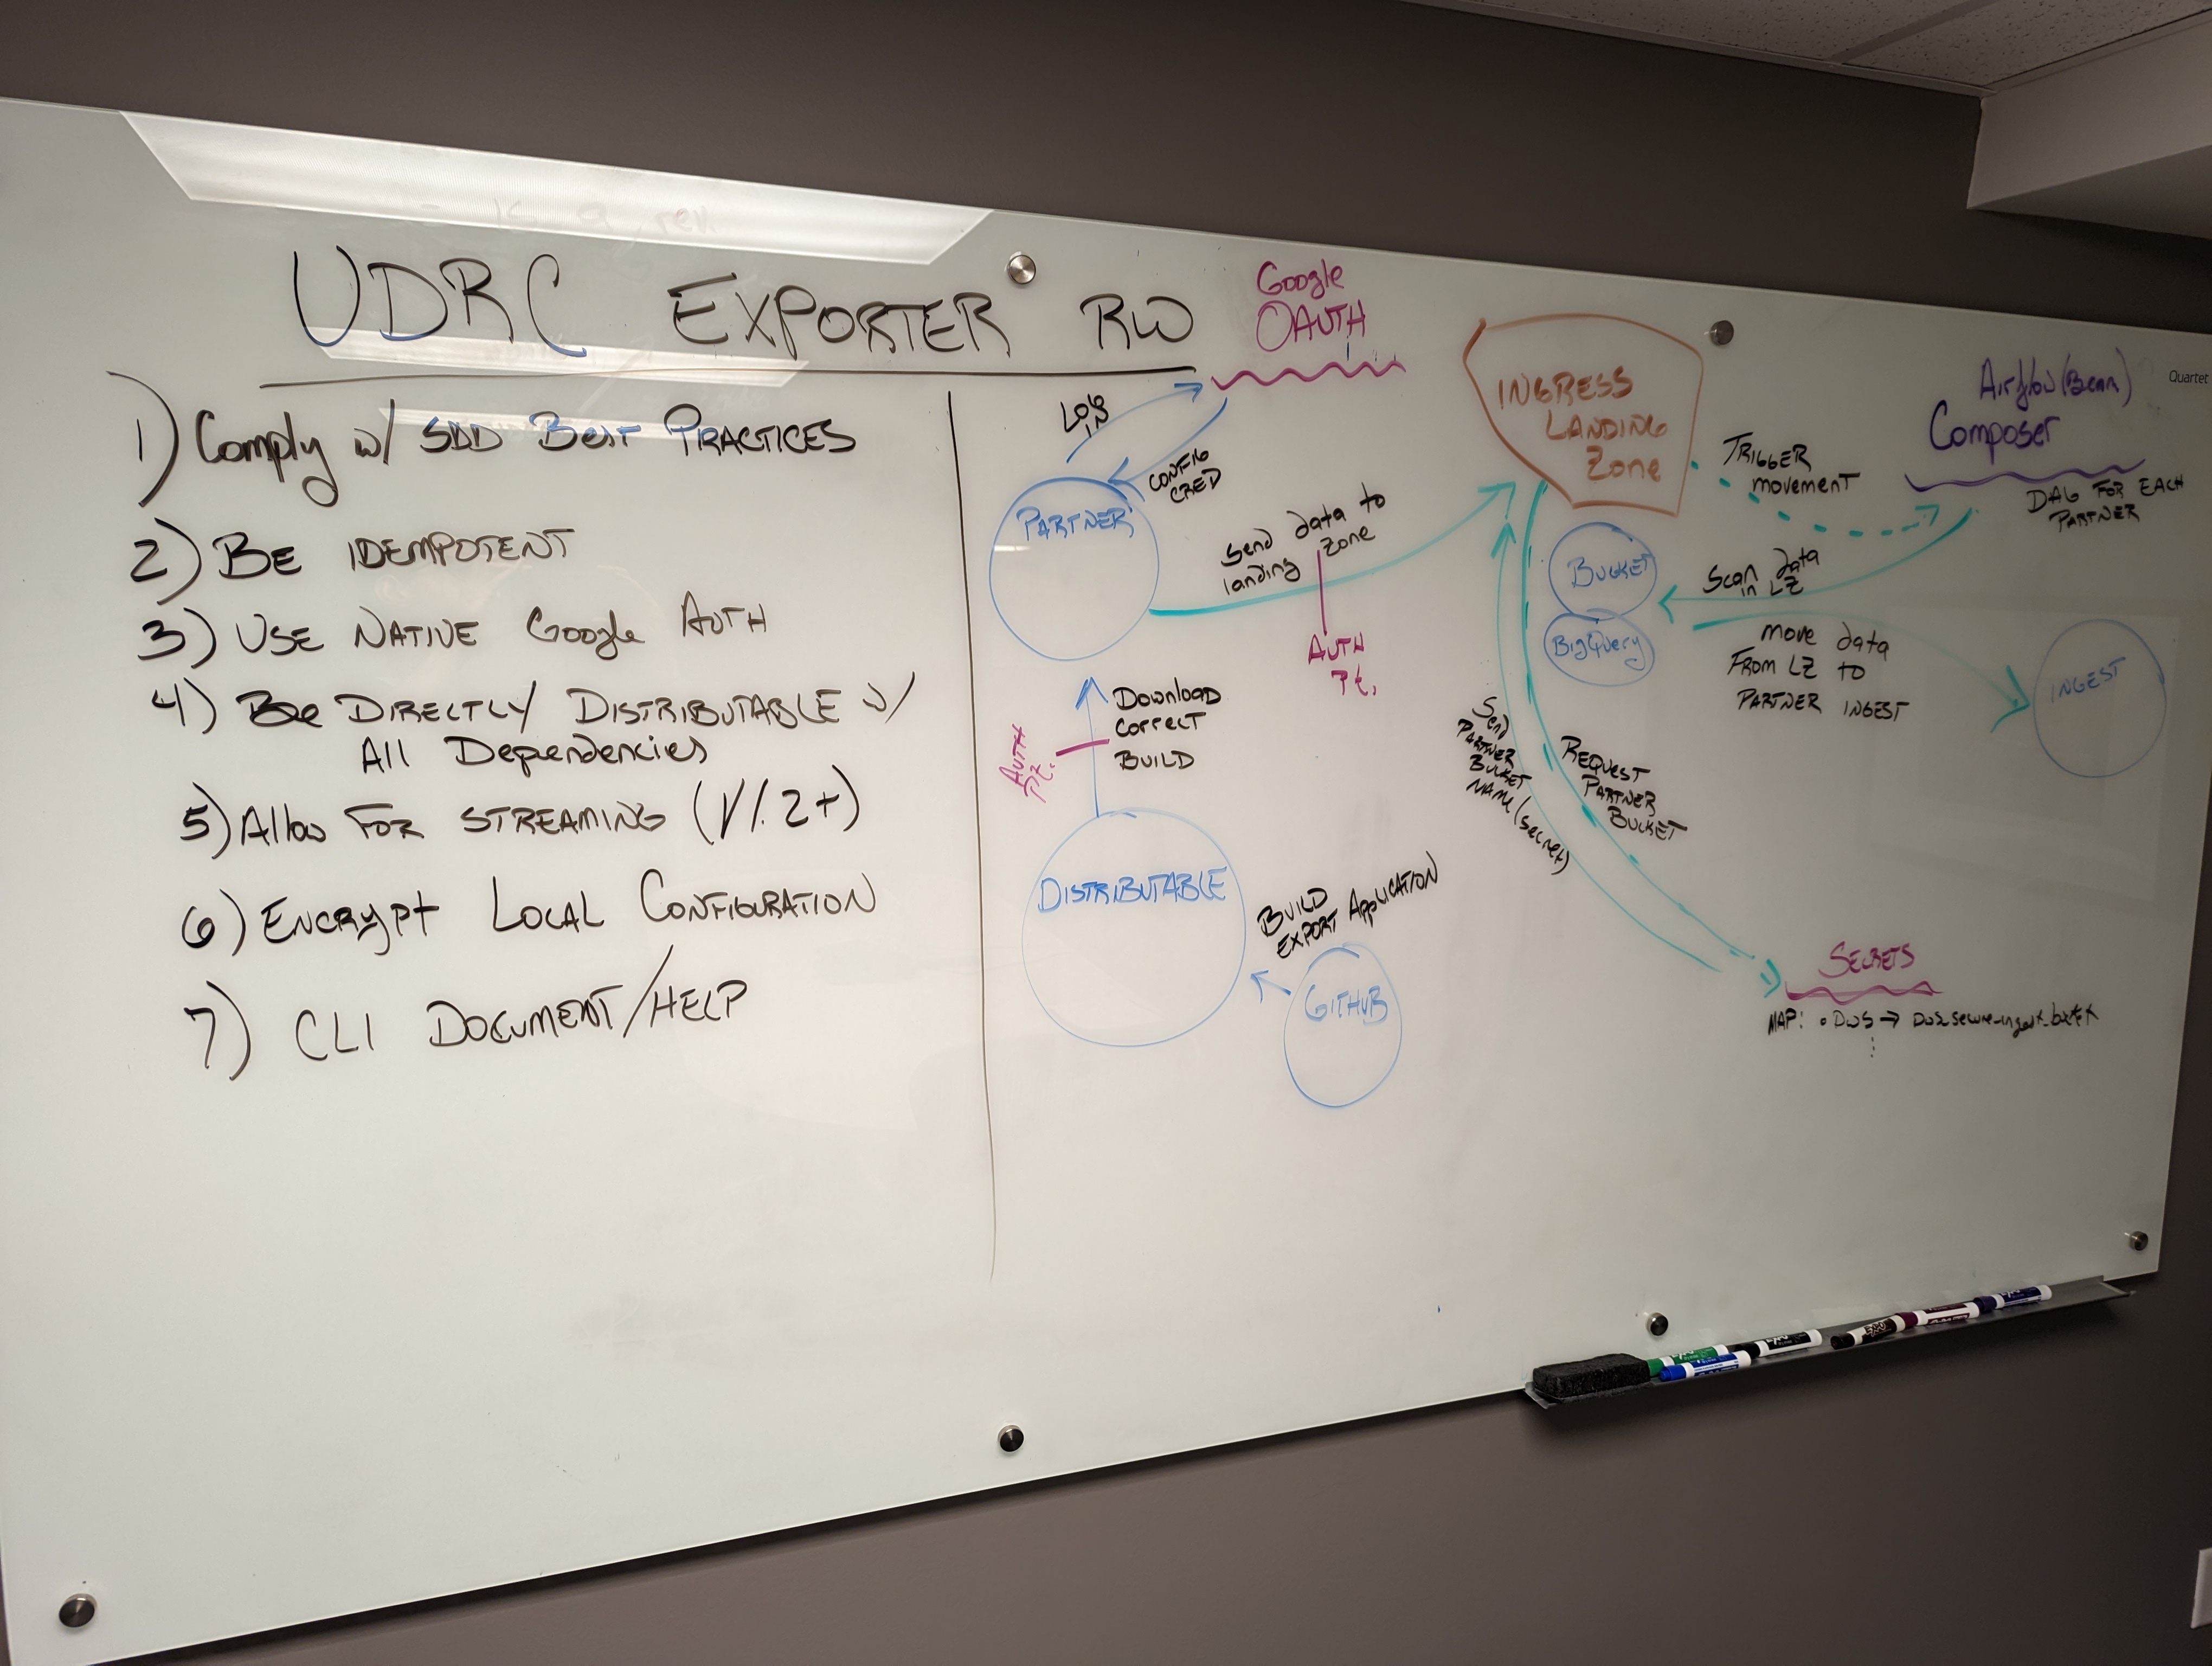 UDRC EXPORTER RW
1) Comply w/ SDD Best PRACTICES
2) BE IDEMPOTENT
3) USE NATIVE Google AUTH
4) Be DIRECTLY DISTRIBUTABLE w/
All Dependencies
5) Allow FOR STREAMING (V1.2+)
6) ENCRYPT LOCAL CONFIGURATION
7) CLI DOCUMENT/HELP
Google
OAUTH
LOG
IN
CONFIG
CRED
PARTNER
Send data to
landing zone
AUTH
Pt.
Download
Correct
BUILD
AUTH
Pt.
DISTRIBUTABLE
BUILD
EXPORT Application
GITHUB
INGRESS
LANDING
Zone
BUCKET
BigQuery
TRIGGER
movement
Airflow (Beam)
Composer
DAG FOR EACH
PARTNER
Scan data
in LZ
move data
FROM LZ to
PARTNER INGEST
INGEST
Send
PARTNER
BUCKET
NAME (secret)
REQUEST
PARTNER
BUCKET
SECRETS
MAP: • DWS →
Quartet
EXPO